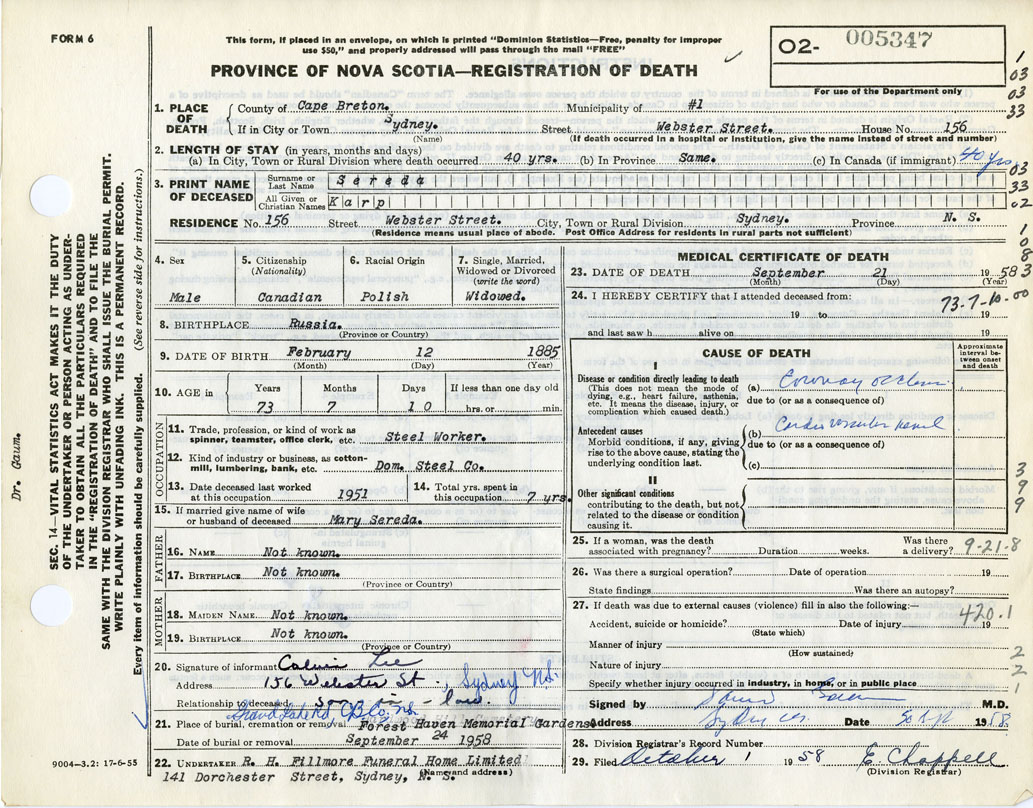 FORM 6
This form, if placed in an envelope, on which is printed "Dominion Statistics—Free, penalty for improper
use $50," and properly addressed will pass through the mail "FREE"
PROVINCE OF NOVA SCOTIA—REGISTRATION OF DEATH
O2- 005347
For use of the Department only
1. PLACE OF DEATH
County of Cape Breton. Municipality of #1
If in City or Town Sydney. Street Webster Street. House No. 156
(Name) (If death occurred in a hospital or institution, give the name instead of street and number)
2. LENGTH OF STAY (in years, months and days)
(a) In City, Town or Rural Division where death occurred 40 yrs. (b) In Province Same. (c) In Canada (if immigrant) 40 yrs
3. PRINT NAME OF DECEASED
Surname or Last Name Sereda
All Given or Christian Names Karp
RESIDENCE No. 156 Street Webster Street. City, Town or Rural Division Sydney. Province N. S.
(Residence means usual place of abode. Post Office Address for residents in rural parts not sufficient)
4. Sex
Male
5. Citizenship
(Nationality)
Canadian
6. Racial Origin
Polish
7. Single, Married,
Widowed or Divorced
(write the word)
Widowed.
8. BIRTHPLACE Russia.
(Province or Country)
9. DATE OF BIRTH February 12 1885
(Month) (Day) (Year)
10. AGE in
Years Months Days If less than one day old
73 7 10 hrs. or min.
OCCUPATION
11. Trade, profession, or kind of work as
spinner, teamster, office clerk, etc. Steel Worker.
12. Kind of industry or business, as cotton-
mill, lumbering, bank, etc. Dom. Steel Co.
13. Date deceased last worked
at this occupation 1951
14. Total yrs. spent in
this occupation 7 yrs.
15. If married give name of wife
or husband of deceased Mary Sereda.
FATHER
16. NAME Not known.
17. BIRTHPLACE Not known.
(Province or Country)
MOTHER
18. MAIDEN NAME Not known.
19. BIRTHPLACE Not known.
(Province or Country)
20. Signature of informant Calvin Lee
Address 156 Webster St., Sydney N.S.
Relationship to deceased Son - in - law.
21. Place of burial, cremation or removal Forest Haven Memorial Gardens
Date of burial or removal September 24 1958
22. UNDERTAKER R. H. Fillmore Funeral Home Limited
(Name and address)
141 Dorchester Street, Sydney, N. S.
MEDICAL CERTIFICATE OF DEATH
23. DATE OF DEATH September 21 1958
(Month) (Day) (Year)
24. I HEREBY CERTIFY that I attended deceased from:
19 to 19
73-7-10-00
and last saw h alive on 19
CAUSE OF DEATH
Approximate interval between onset and death
I
Disease or condition directly leading to death
(This does not mean the mode of
dying, e.g., heart failure, asthenia,
etc. It means the disease, injury, or
complication which caused death.)
(a) Coronary occlusion
due to (or as a consequence of)
Antecedent causes
Morbid conditions, if any, giving
rise to the above cause, stating the
underlying condition last.
(b)
due to (or as a consequence of)
(c)
II
Other significant conditions
contributing to the death, but not
related to the disease or condition
causing it.
25. If a woman, was the death
associated with pregnancy? Duration weeks. Was there a delivery?
9-21-8
26. Was there a surgical operation? Date of operation 19
State findings Was there an autopsy?
27. If death was due to external causes (violence) fill in also the following:—
420.1
Accident, suicide or homicide? Date of injury 19
(State which)
Manner of injury
(How sustained)
Nature of injury
Specify whether injury occurred in industry, in home, or in public place
Signed by M.D.
Address Sydney Date 1958
28. Division Registrar's Record Number
29. Filed October 1 1958 E. Chappell
(Division Registrar)
1
03
03
33
03
33
02
1
0
8
3
3
9
9
2
2
1
SEC. 14—VITAL STATISTICS ACT MAKES IT THE DUTY
OF THE UNDERTAKER OR PERSON ACTING AS UNDER-
TAKER TO OBTAIN ALL THE PARTICULARS REQUIRED
IN THE "REGISTRATION OF DEATH" AND TO FILE THE
SAME WITH THE DIVISION REGISTRAR WHO SHALL ISSUE THE BURIAL PERMIT.
WRITE PLAINLY WITH UNFADING INK. THIS IS A PERMANENT RECORD.
Every item of information should be carefully supplied. (See reverse side for instructions.)
Dr. Gaum.
9004—3.2: 17-6-55